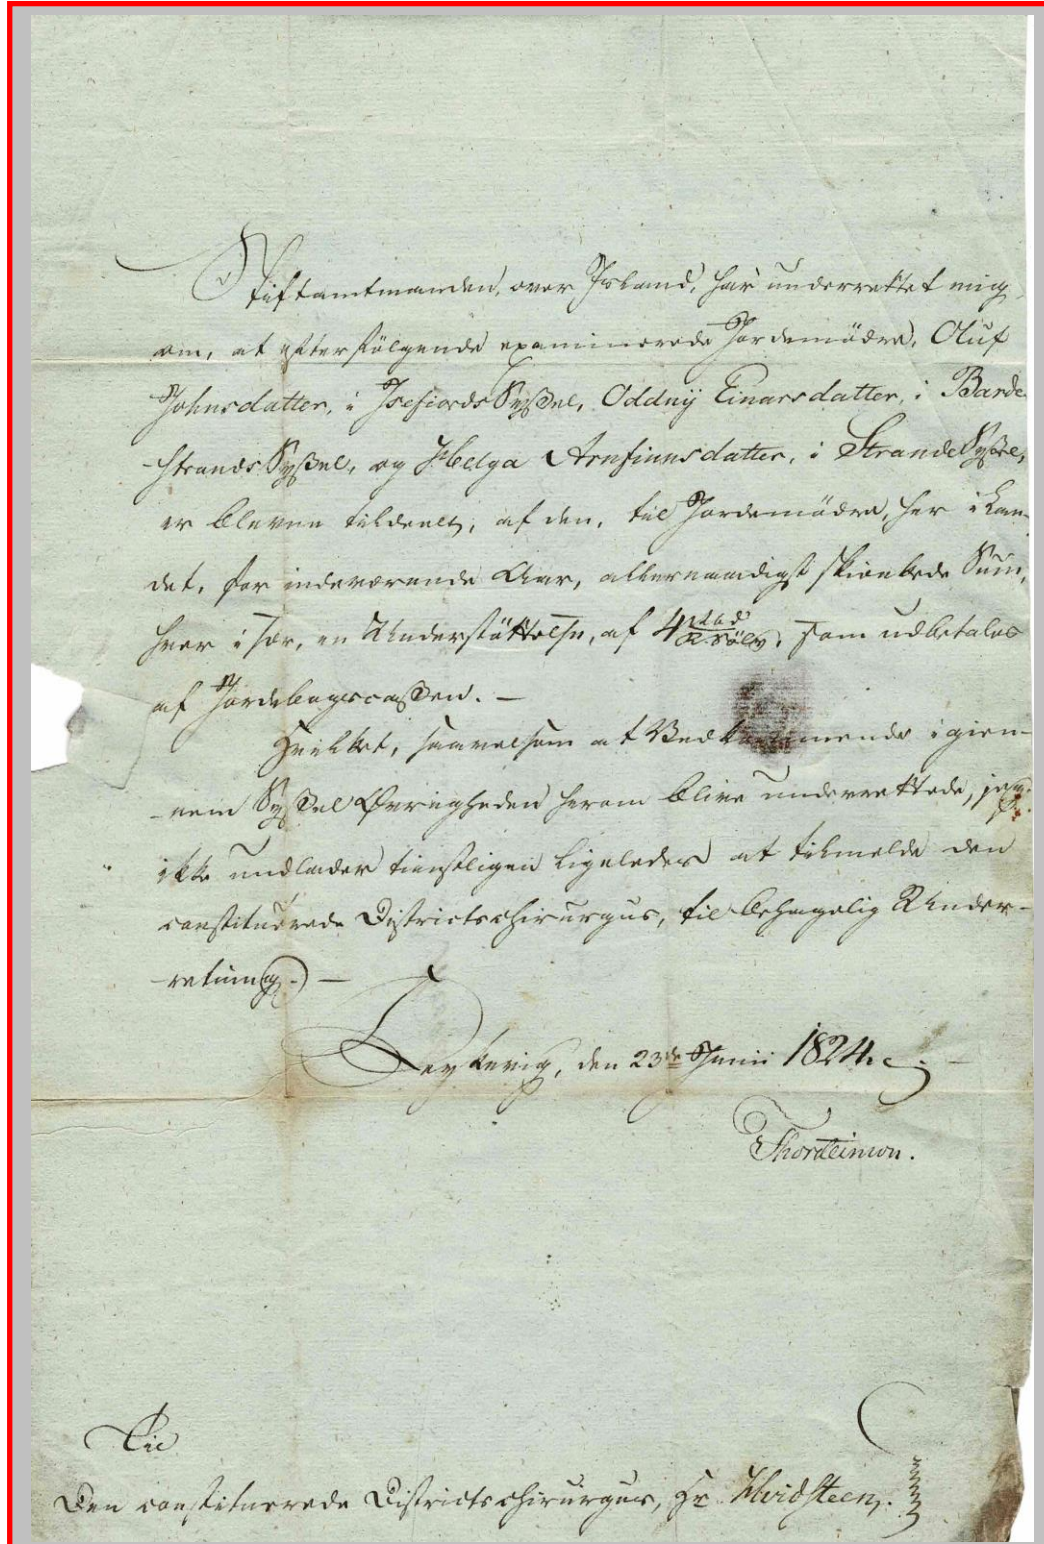 Stiftamtmanden, over Island, har underrettet mig
om, at efterfølgende examinerede Jordemødre, Oluf
Johnsdatter, i Isefiords Sysßel, Oddnÿ Einarsdatter, i Barde-
-strands Sysßel, og Helga Arnfinnsdatter, i Strande Sysßel,
er blevne tildeelt, af den, til Jordemødre, her i Lan-
det, for indeværende Aar, allernaadigst skienkede Sum,
hver i sær, en Understøttelse, af 4 rbd r. Sölv, som udbetales
af Jordebogscasßen. —
Hvilket, saavelsom at Vedkommende igien-
-nem Sysßel Øvrigheden herom blive underrettede, jeg
ikke undlader tienstligen ligeledes at tilmelde den
constituerede Districtschirurgus, til behagelig Under-
-retning. —
Reykevig, den 23de Junii 1824.
Thorsteinson.
Til
Den constituerede Districtschirurgus, Hr. Hvidsteen.